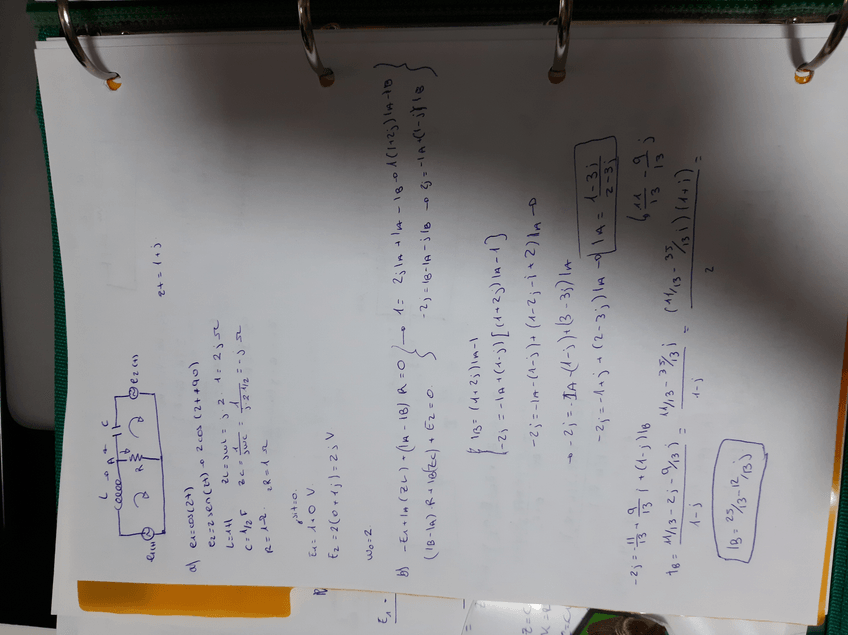 L → A + C
R
e1(t) e2(t)
z+ = 1+j
a) e1=cos(2t)
e2=2sen(2t) → 2cos(2t+90)
L=1H ZL=jωL=j 2·1=2j Ω
C=1/2 F ZC=1/jωC=1/j·2·1/2=-j Ω
R=1Ω ZR=1Ω
E1=1+0 V.
E2=2(0+1j)=2j V
ω0=2
b) -E1+IA(ZL)+(IA-IB)R=0 } → 1=2jIA+IA-IB→1(1+2j)IA-IB }
(IB-IA)·R+IB(ZC)+E2=0. } -2j=IB-IA-jIB→2j=-IA+(1-j)IB }
{ IB=(1+2j)IA-1
{ -2j=-IA+(1-j)[(1+2j)IA-1] }
-2j=-IA-(1-j)+(1-2j-j+2)IA→
→ -2j=-IA-(1-j)+(3-3j)IA
-2j=-1+j+(2-3j)IA→ IA=1-3j/2-3j
↳ 11/13 - 9/13 j
-2j=-11/13+9/13 j+(1-j)IB
IB=11/13-2j-9/13 j/1-j = 11/13-35/13 j/1-j = (11/13-35/13 j)(1+j)/2 =
IB=23/13-12/13 j
E1 -